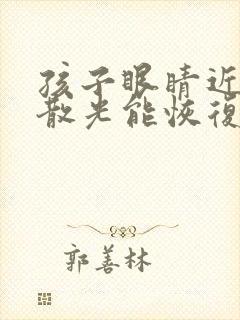 孩子眼睛近
散光能恢復
郭善林